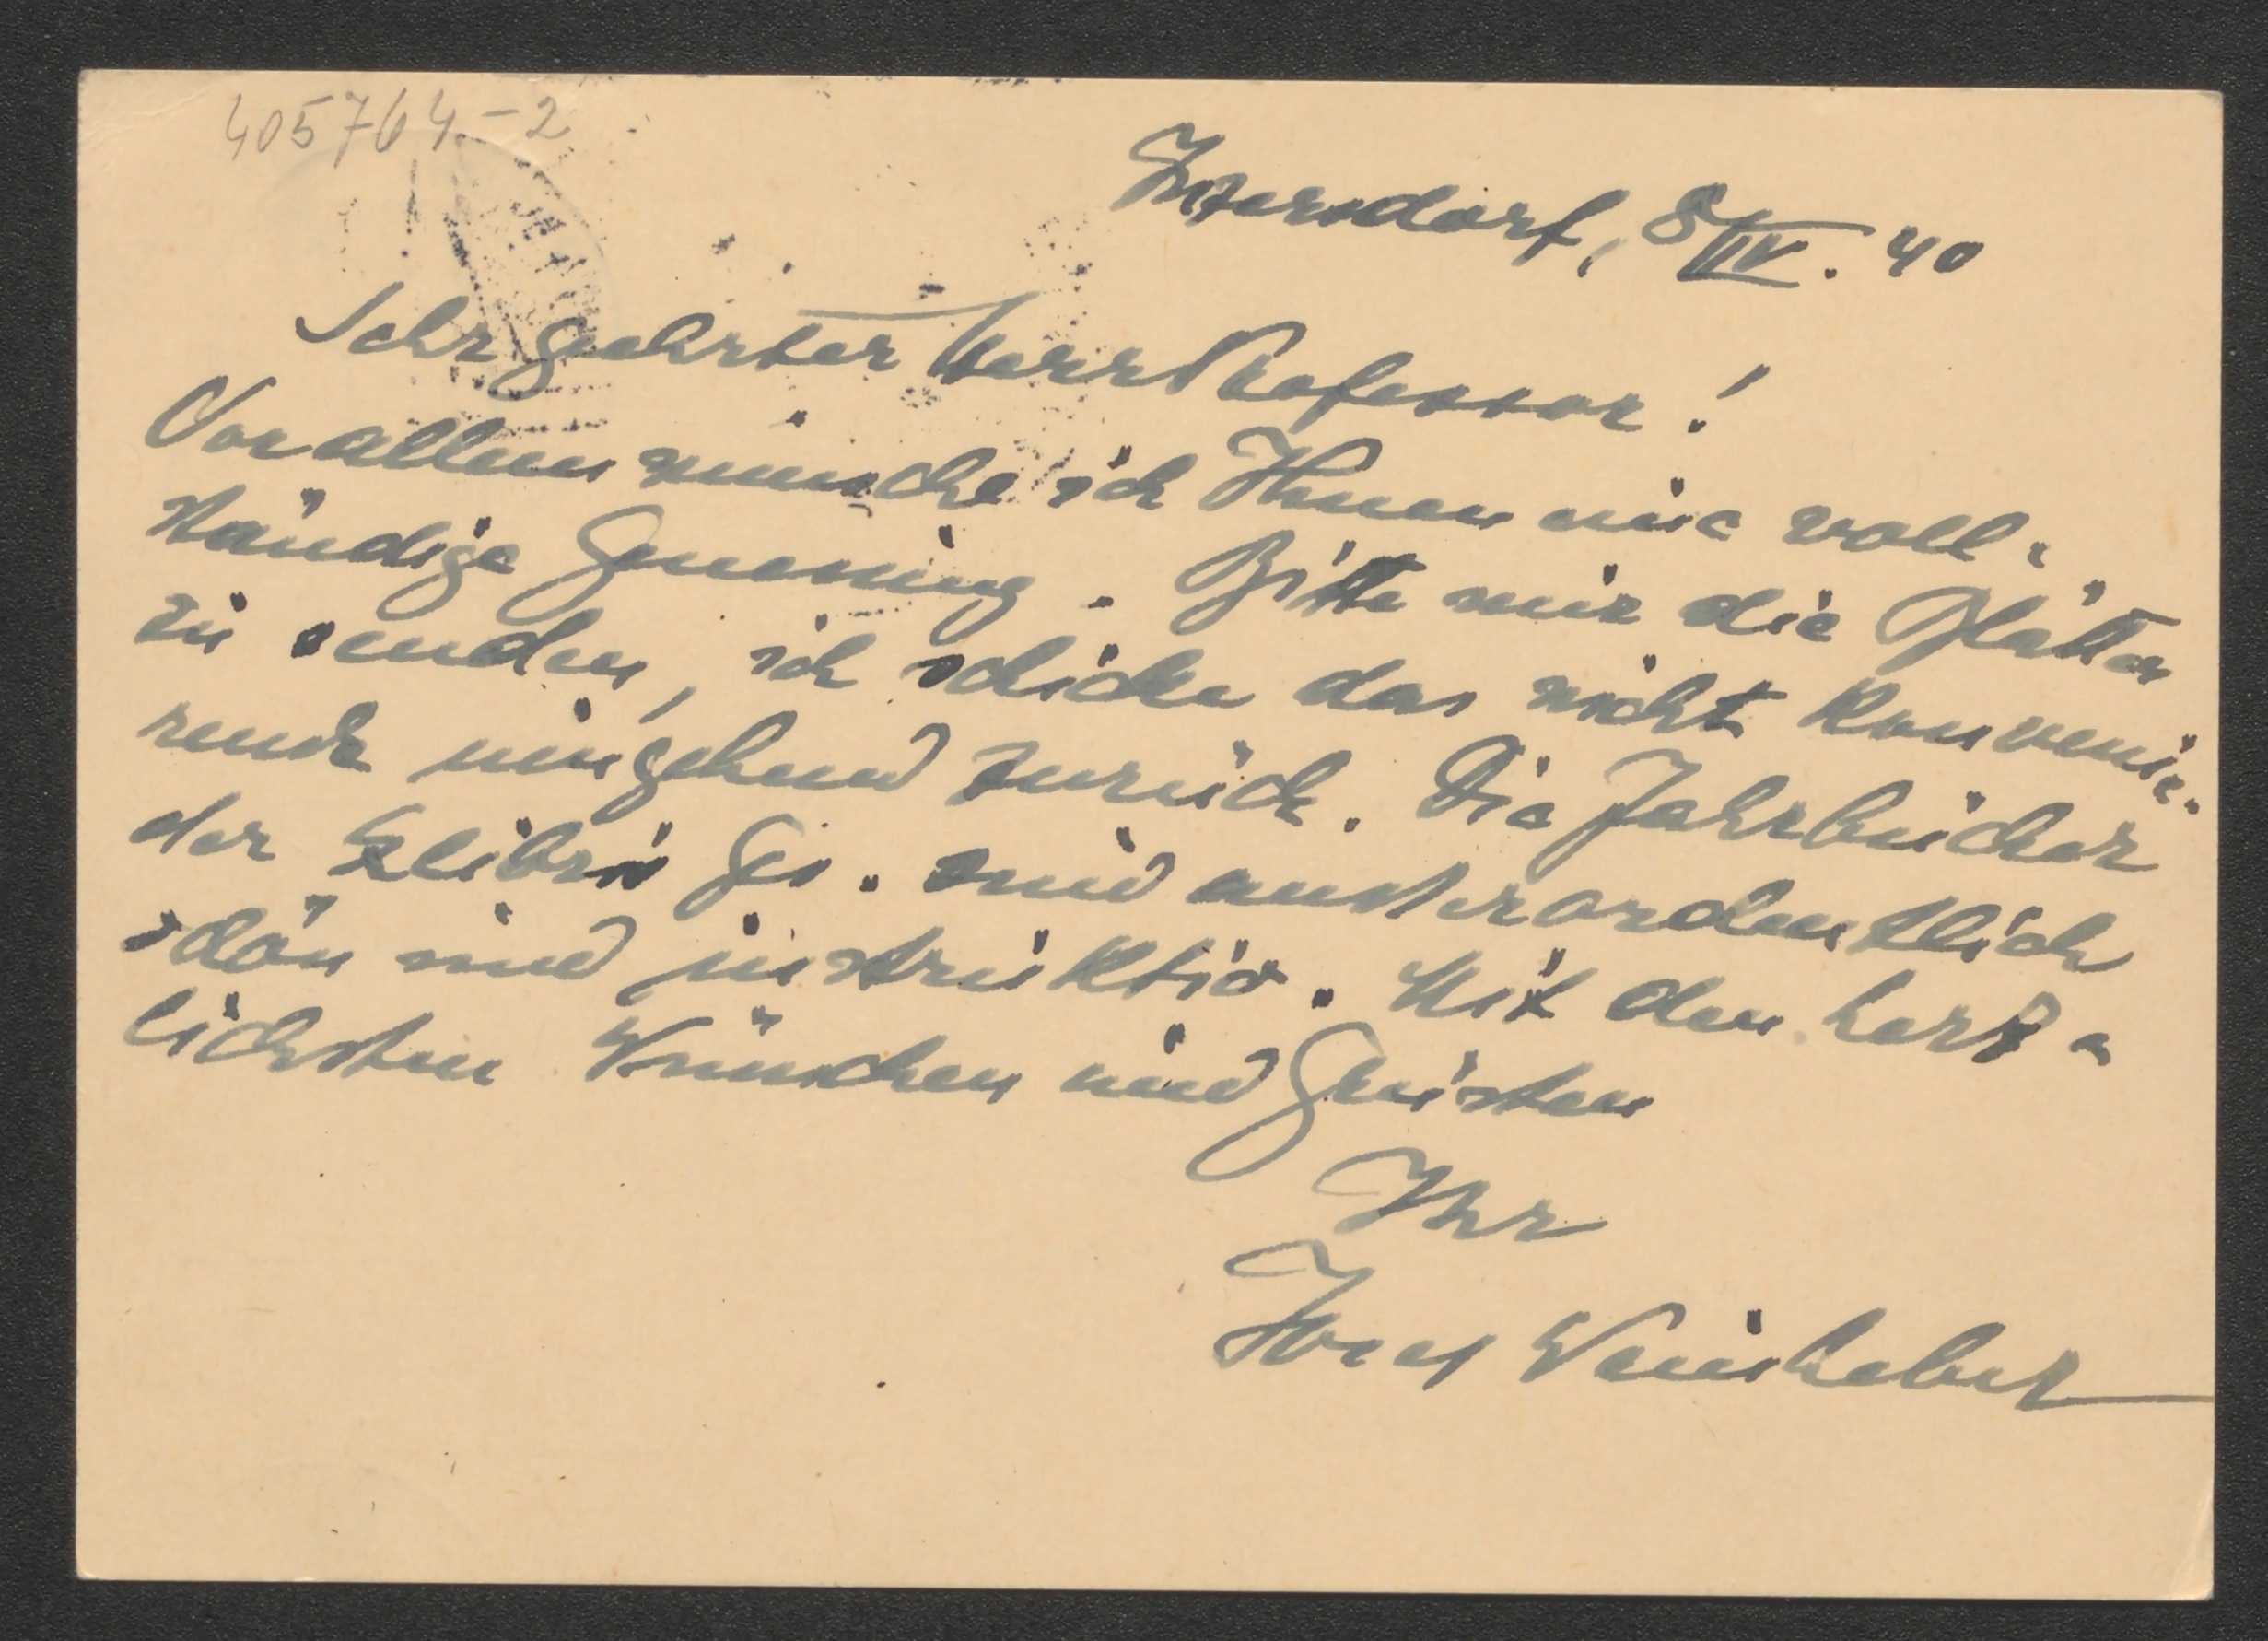 405764-2
Inzersdorf, 8/IV. 40
Sehr geehrter Herr Professor!
Vor allem wünsche ich Ihnen eine voll-
ständige Genesung. Bitte mir die Blätter
zu senden, ich schicke das nicht Konvenie-
rende umgehend zurück. Die Jahrbücher
der Exlibris Ges. sind außerordentlich
schön und instruktiv. Mit den herz-
lichsten Wünschen und Grüßen
Ihr
Josef Weinheber